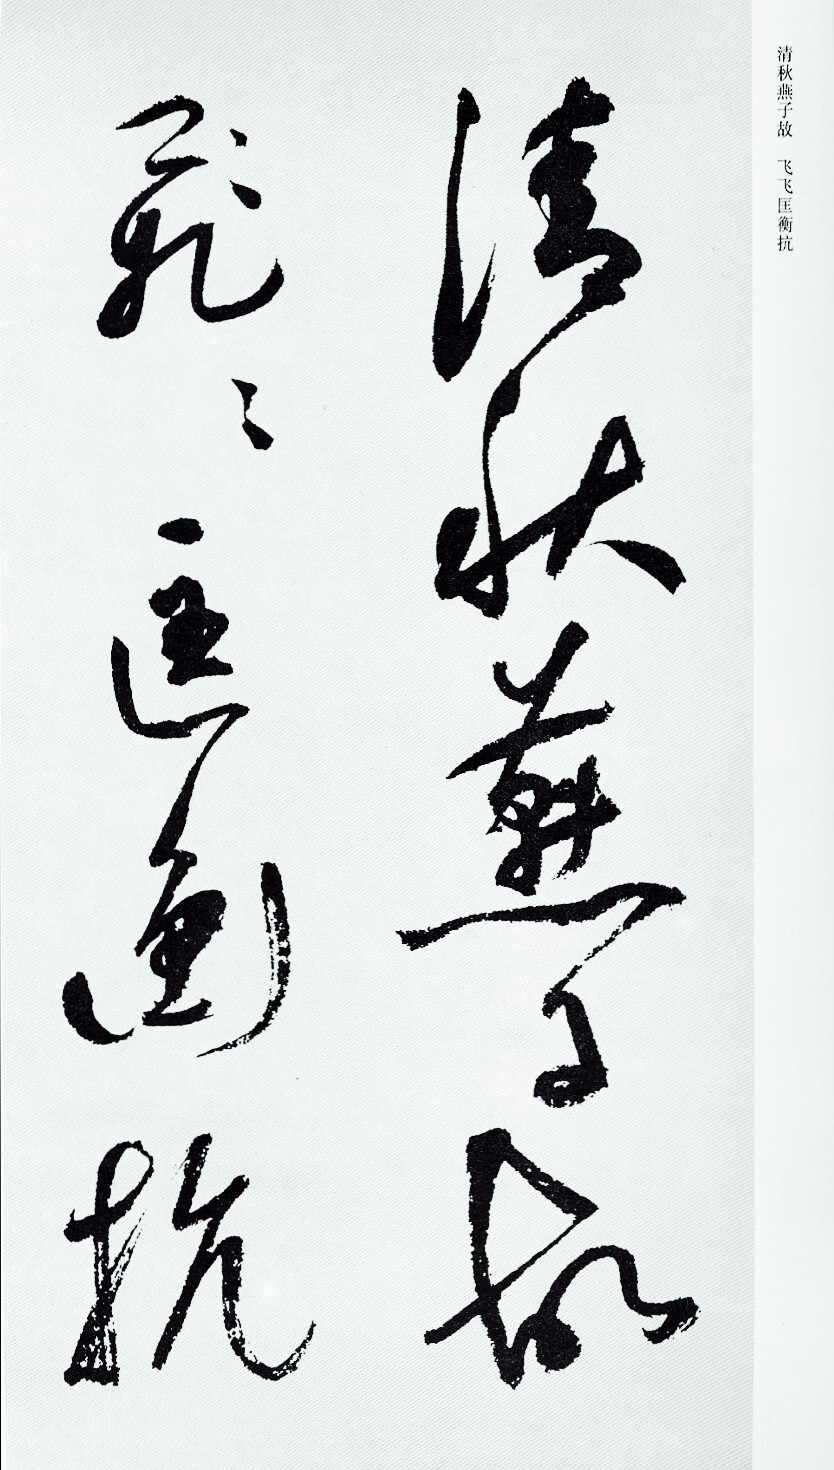 清秋燕子故　飞飞匡衡抗
清秋燕子故
飛〻匡衡抗